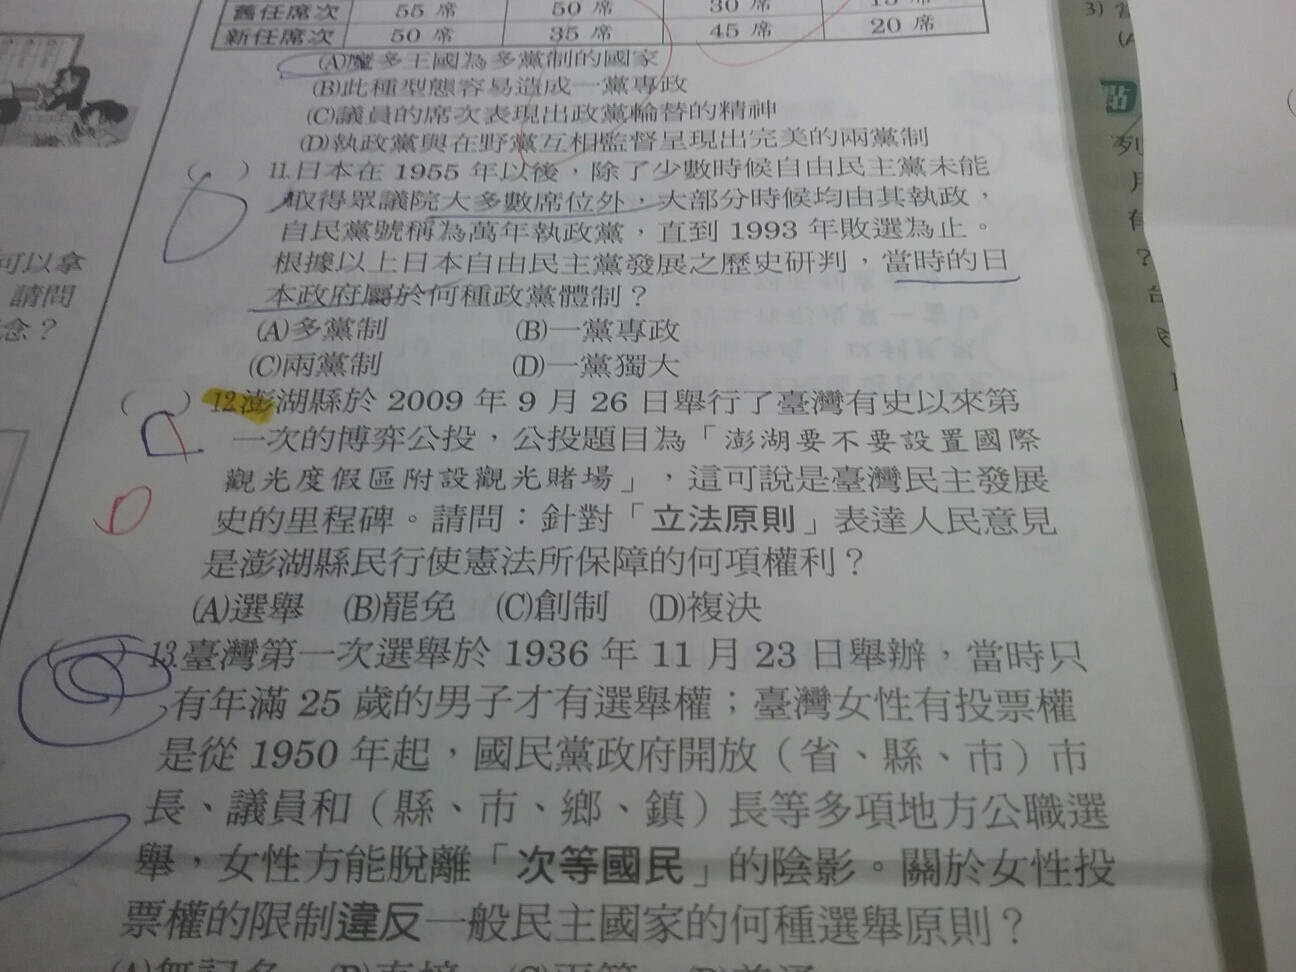 舊任席次 55 席 50 席 30 席 15 席
新任席次 50 席 35 席 45 席 20 席
(A)魔多王國為多黨制的國家
(B)此種型態容易造成一黨專政
(C)議員的席次表現出政黨輪替的精神
(D)執政黨與在野黨互相監督呈現出完美的兩黨制
( )11.日本在 1955 年以後，除了少數時候自由民主黨未能
取得眾議院大多數席位外，大部分時候均由其執政，
自民黨號稱為萬年執政黨，直到 1993 年敗選為止。
根據以上日本自由民主黨發展之歷史研判，當時的日
本政府屬於何種政黨體制？
(A)多黨制 (B)一黨專政
(C)兩黨制 (D)一黨獨大
( )12.澎湖縣於 2009 年 9 月 26 日舉行了臺灣有史以來第
一次的博弈公投，公投題目為「澎湖要不要設置國際
觀光度假區附設觀光賭場」，這可說是臺灣民主發展
史的里程碑。請問：針對「立法原則」表達人民意見
是澎湖縣民行使憲法所保障的何項權利？
(A)選舉 (B)罷免 (C)創制 (D)複決
D
( )13.臺灣第一次選舉於 1936 年 11 月 23 日舉辦，當時只
有年滿 25 歲的男子才有選舉權；臺灣女性有投票權
是從 1950 年起，國民黨政府開放（省、縣、市）市
長、議員和（縣、市、鄉、鎮）長等多項地方公職選
舉，女性方能脫離「次等國民」的陰影。關於女性投
票權的限制違反一般民主國家的何種選舉原則？
(A)無記名 (B)直接 (C)平等 (D)普通
可以拿
請問
念？
3)
點
列
月
有
？